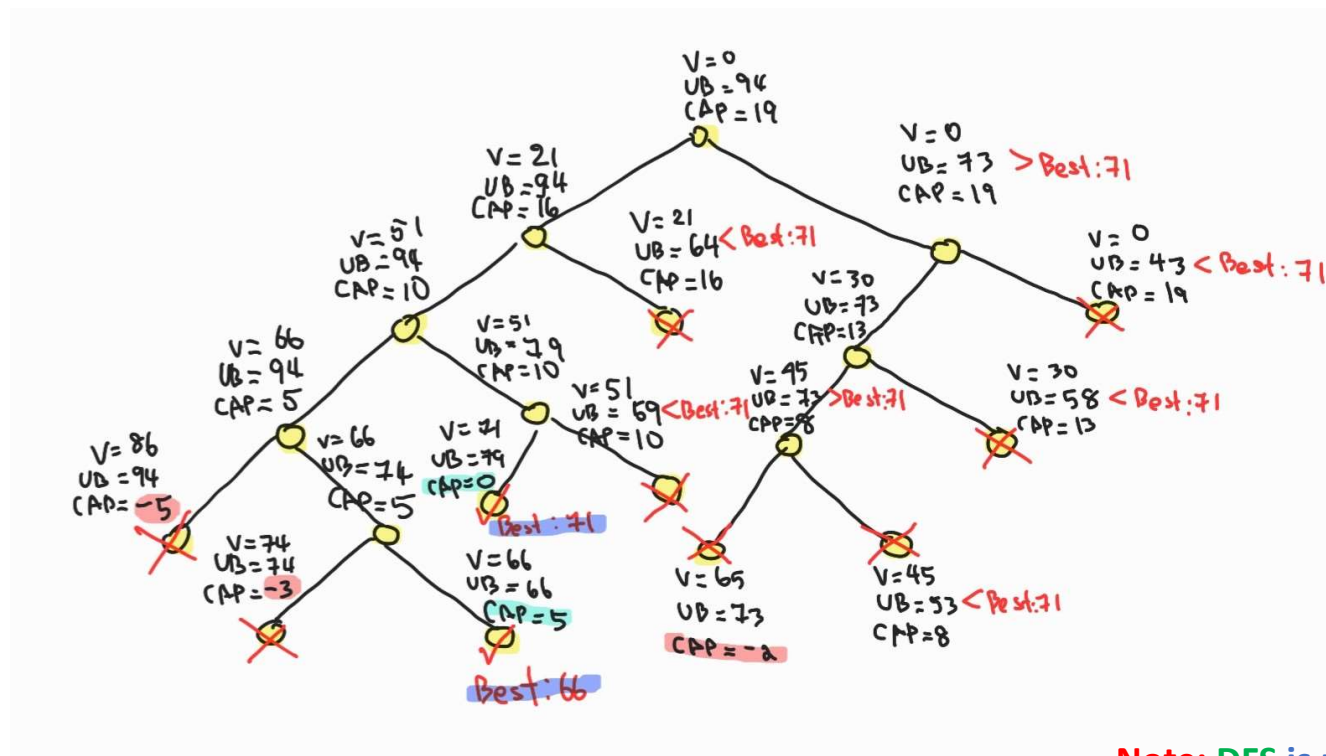 V=0
UB=94
CAP=19
V=0
UB=73 >Best:71
CAP=19
V=21
UB=94
CAP=16
V=21
UB=64 <Best:71
CAP=16
V=0
UB=43 <Best:71
CAP=19
V=51
UB=94
CAP=10
V=30
UB=73
CAP=13
V=51
UB=79
CAP=10
V=66
UB=94
CAP=5
V=51
UB=59 <Best:71
CAP=10
V=45
UB=73 >Best:71
CAP=8
V=30
UB=58 <Best:71
CAP=13
V=86
UB=94
CAP=-5
V=66
UB=74
CAP=5
V=71
UB=79
CAP=0
Best:71
V=74
UB=74
CAP=-3
V=66
UB=66
CAP=5
Best:66
V=65
UB=73
CAP=-2
V=45
UB=53 <Best:71
CAP=8
Note: DFS is